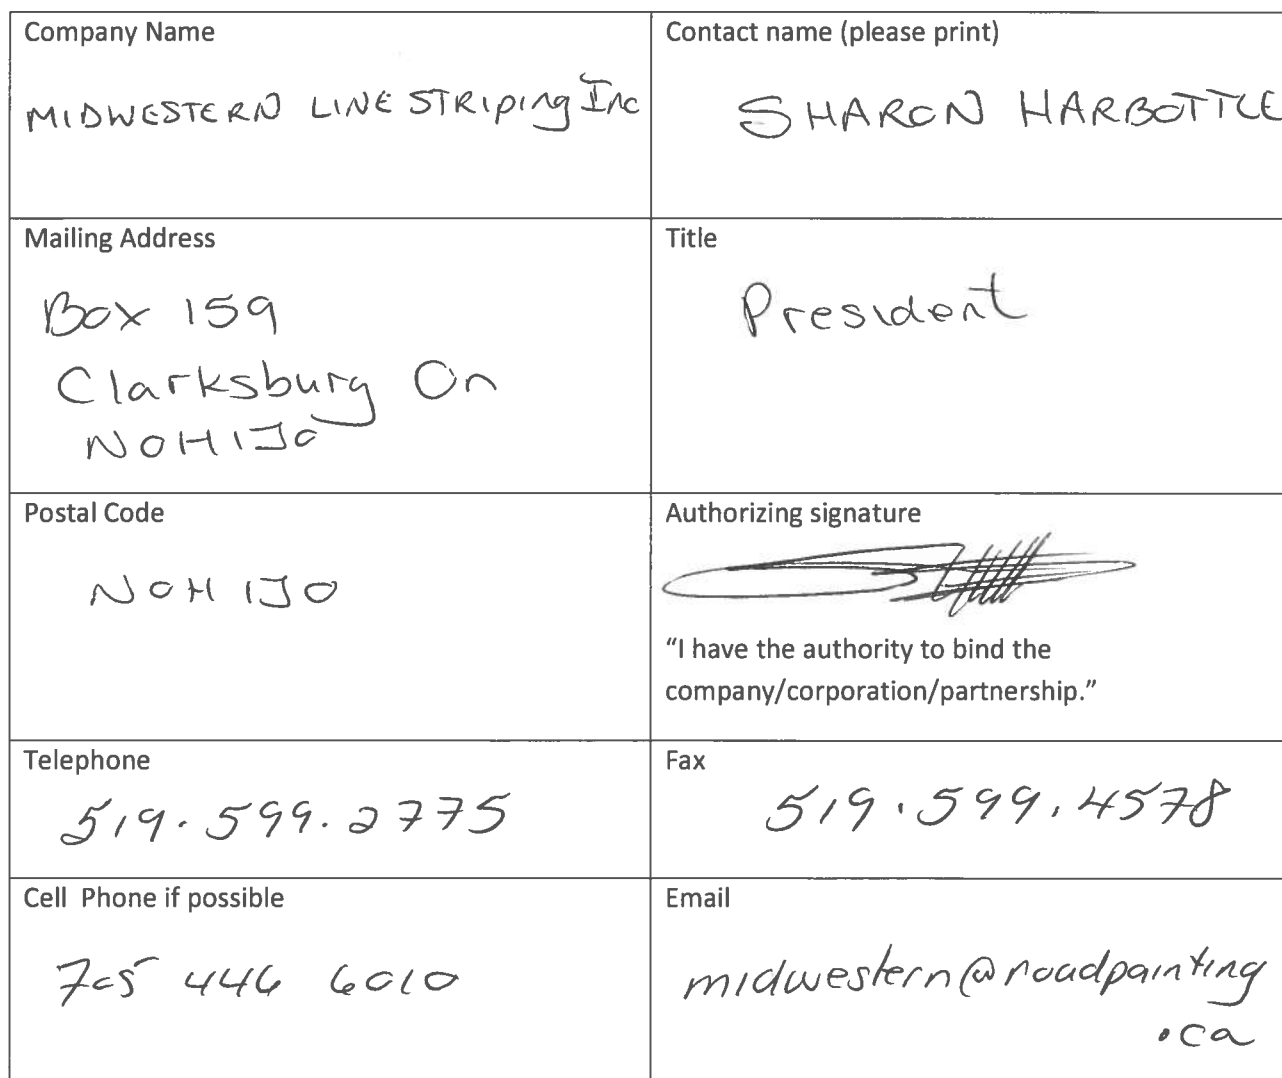 Company Name
MIDWESTERN LINE STRIPING Inc
Contact name (please print)
SHARON HARBOTTLE
Mailing Address
Box 159
Clarksburg On
N0H1J0
Title
President
Postal Code
N0H 1J0
Authorizing signature
“I have the authority to bind the
company/corporation/partnership.”
Telephone
519.599.2775
Fax
519.599.4578
Cell Phone if possible
705 446 6010
Email
midwestern@roadpainting
.ca